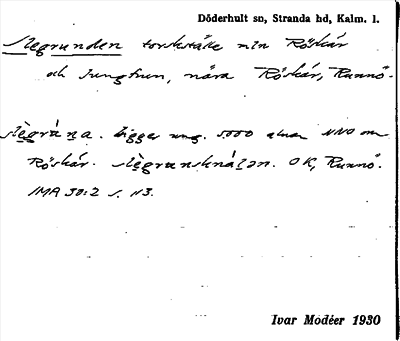 Döderhult sn, Stranda hd, Kalm. l.
Slegrunden torskställe mln Röskär
och Jungfrun, nära Röskär, Runnö.
slègrána. Ligger ung. 5000 alnar NNO om
Röskär. slègrunsknálən. OK, Runnö.
IMA 30:2 s. 113.
Ivar Modéer 1930